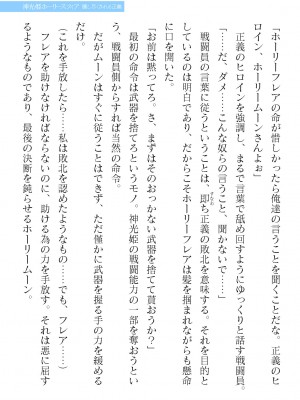 「ホーリーフレアの命が惜しかったら俺達の言うことを聞くことだな。正義のヒ
ロイン、ホーリームーンさんよぉ」
正義のヒロインを強調し、まるで言葉で舐め回すようにゆっくりと話す戦闘員。
「だ、ダメ……こんな奴らの言うこと、聞かないで……」
戦闘員の言葉に従うということは、即ち正義の敗北を意味する。それが劣勢を示
しているのは明白であり、だからこそホーリーフレアは髪を掴まれながらも懸命
に口を開いた。
「お前は黙ってろ。さ、まずはそのおっかない武器を捨てて貰おうか？」
敵を前に武器を捨てるというモノ。神光姫の戦闘能力の一部を奪おうとい
う、戦闘員側からすれば当然の命令。
だがムーンはすぐに従うことはできず、ただ僅かに武器を握る手の力を緩める。
（これを手放したら……私は敗北を認めたようなもの……でも、フレア……）
フレアを助けなければならないのに、助ける為の力を手放す。それは悪に屈す
るようなものであり、最後の決断を鈍らせるホーリームーン。